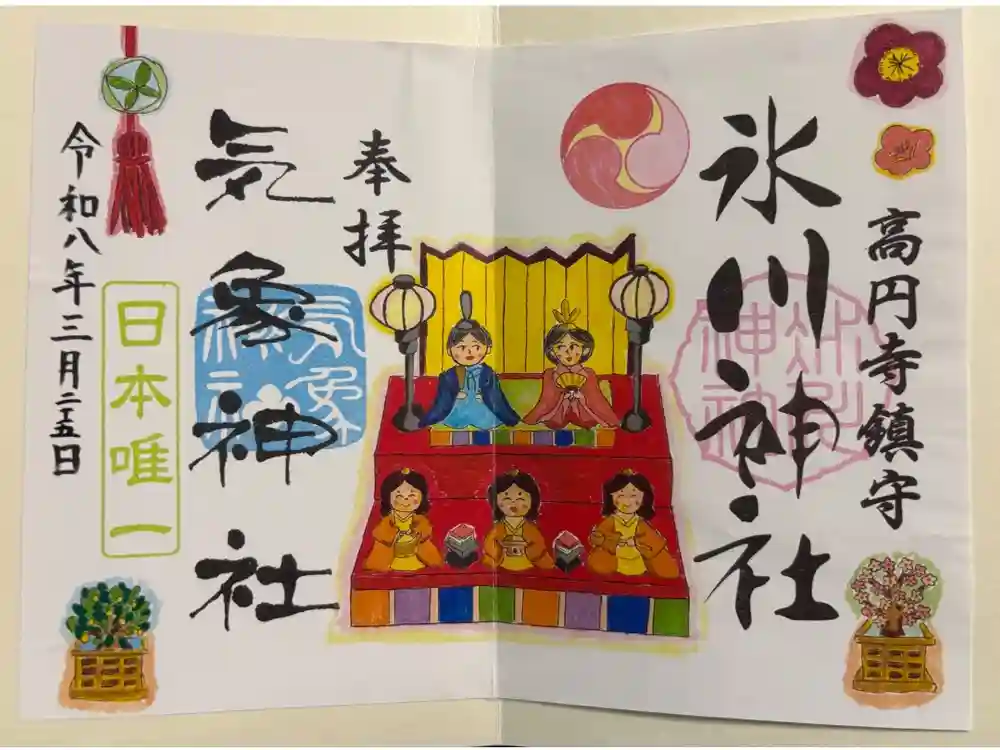 高円寺鎮守
氷川神社
奉拝
気象神社
気象神社
日本唯一
令和八年三月二五日